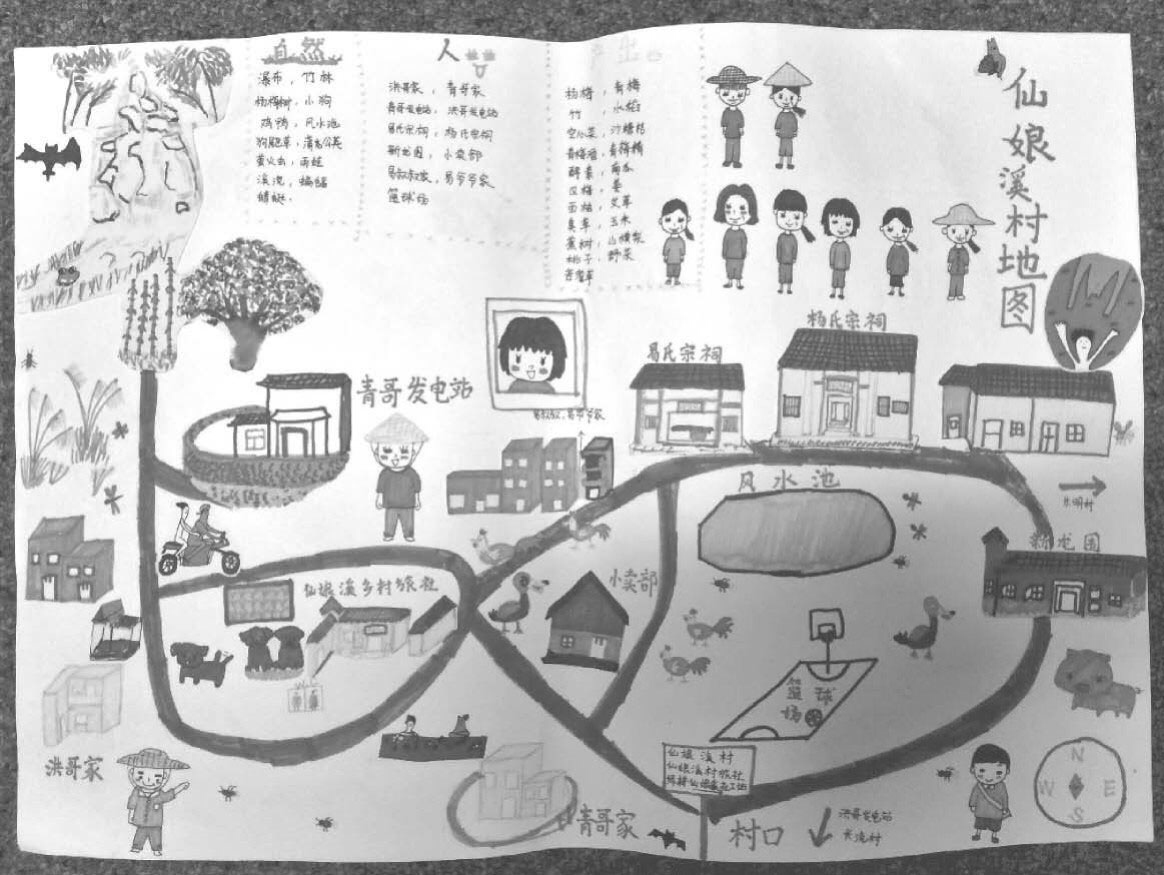 自然
瀑布，竹林
杨梅树，小狗
鸡鸭，风水池
狗尾草，蒲公英
萤火虫，雨蛙
溪流，蝙蝠
蜻蜓
人
洪哥家，青哥家
青哥发电站，洪哥发电站
易氏宗祠，杨氏宗祠
新龙围，小卖部
易叔叔家，易爷爷家
篮球场
产出
杨梅，青梅
竹，水稻
空心菜，沙糖桔
青梅酒，青梅精
酵素，南瓜
豆梅，姜
艾草
玉米
桃子，野菜
仙娘溪村地图
杨氏宗祠
易氏宗祠
青哥发电站
易叔叔，易爷爷家
风水池
长明村
新龙围
小卖部
仙娘溪乡村旅社
篮球场
仙娘溪村
仙娘溪村旅社
洪哥家
青哥家
村口
洪哥发电站
长流村
N
W E
S